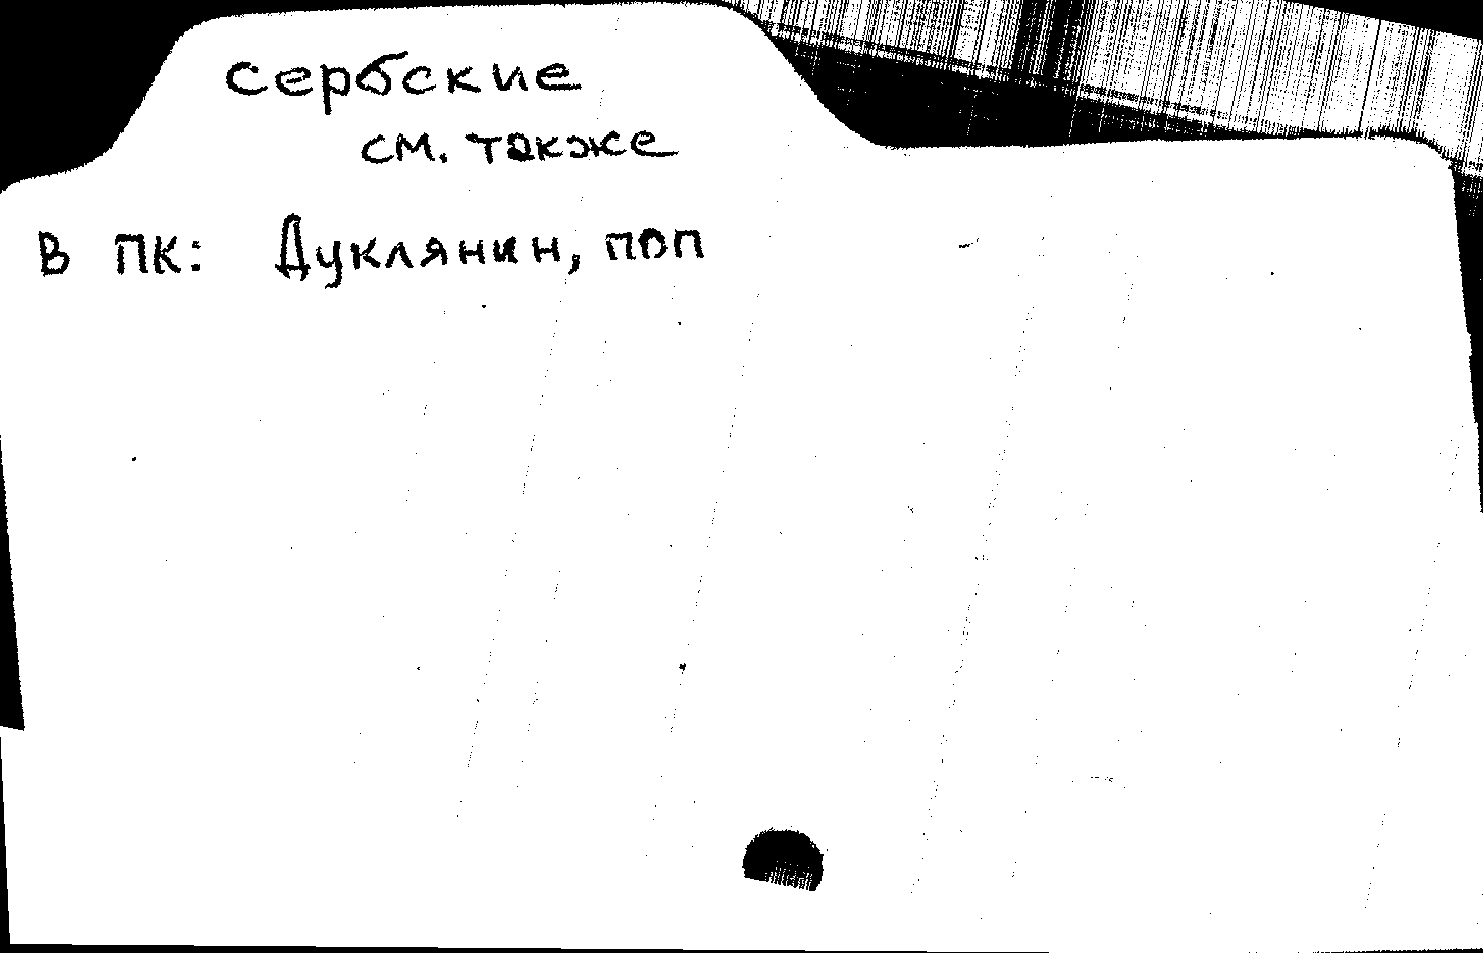 сербские
см. также
В ПК: Дуклянин, поп